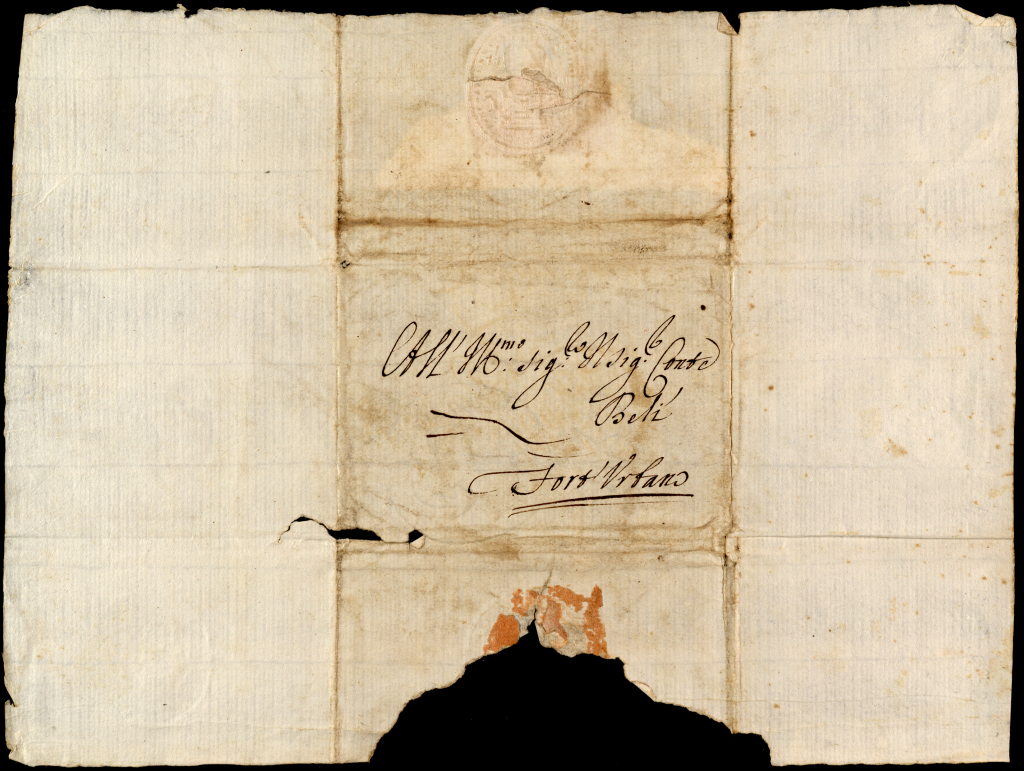 All' Ill.mo Sig.re Il Sig.r Conte
Beli
Fort' Vrbano